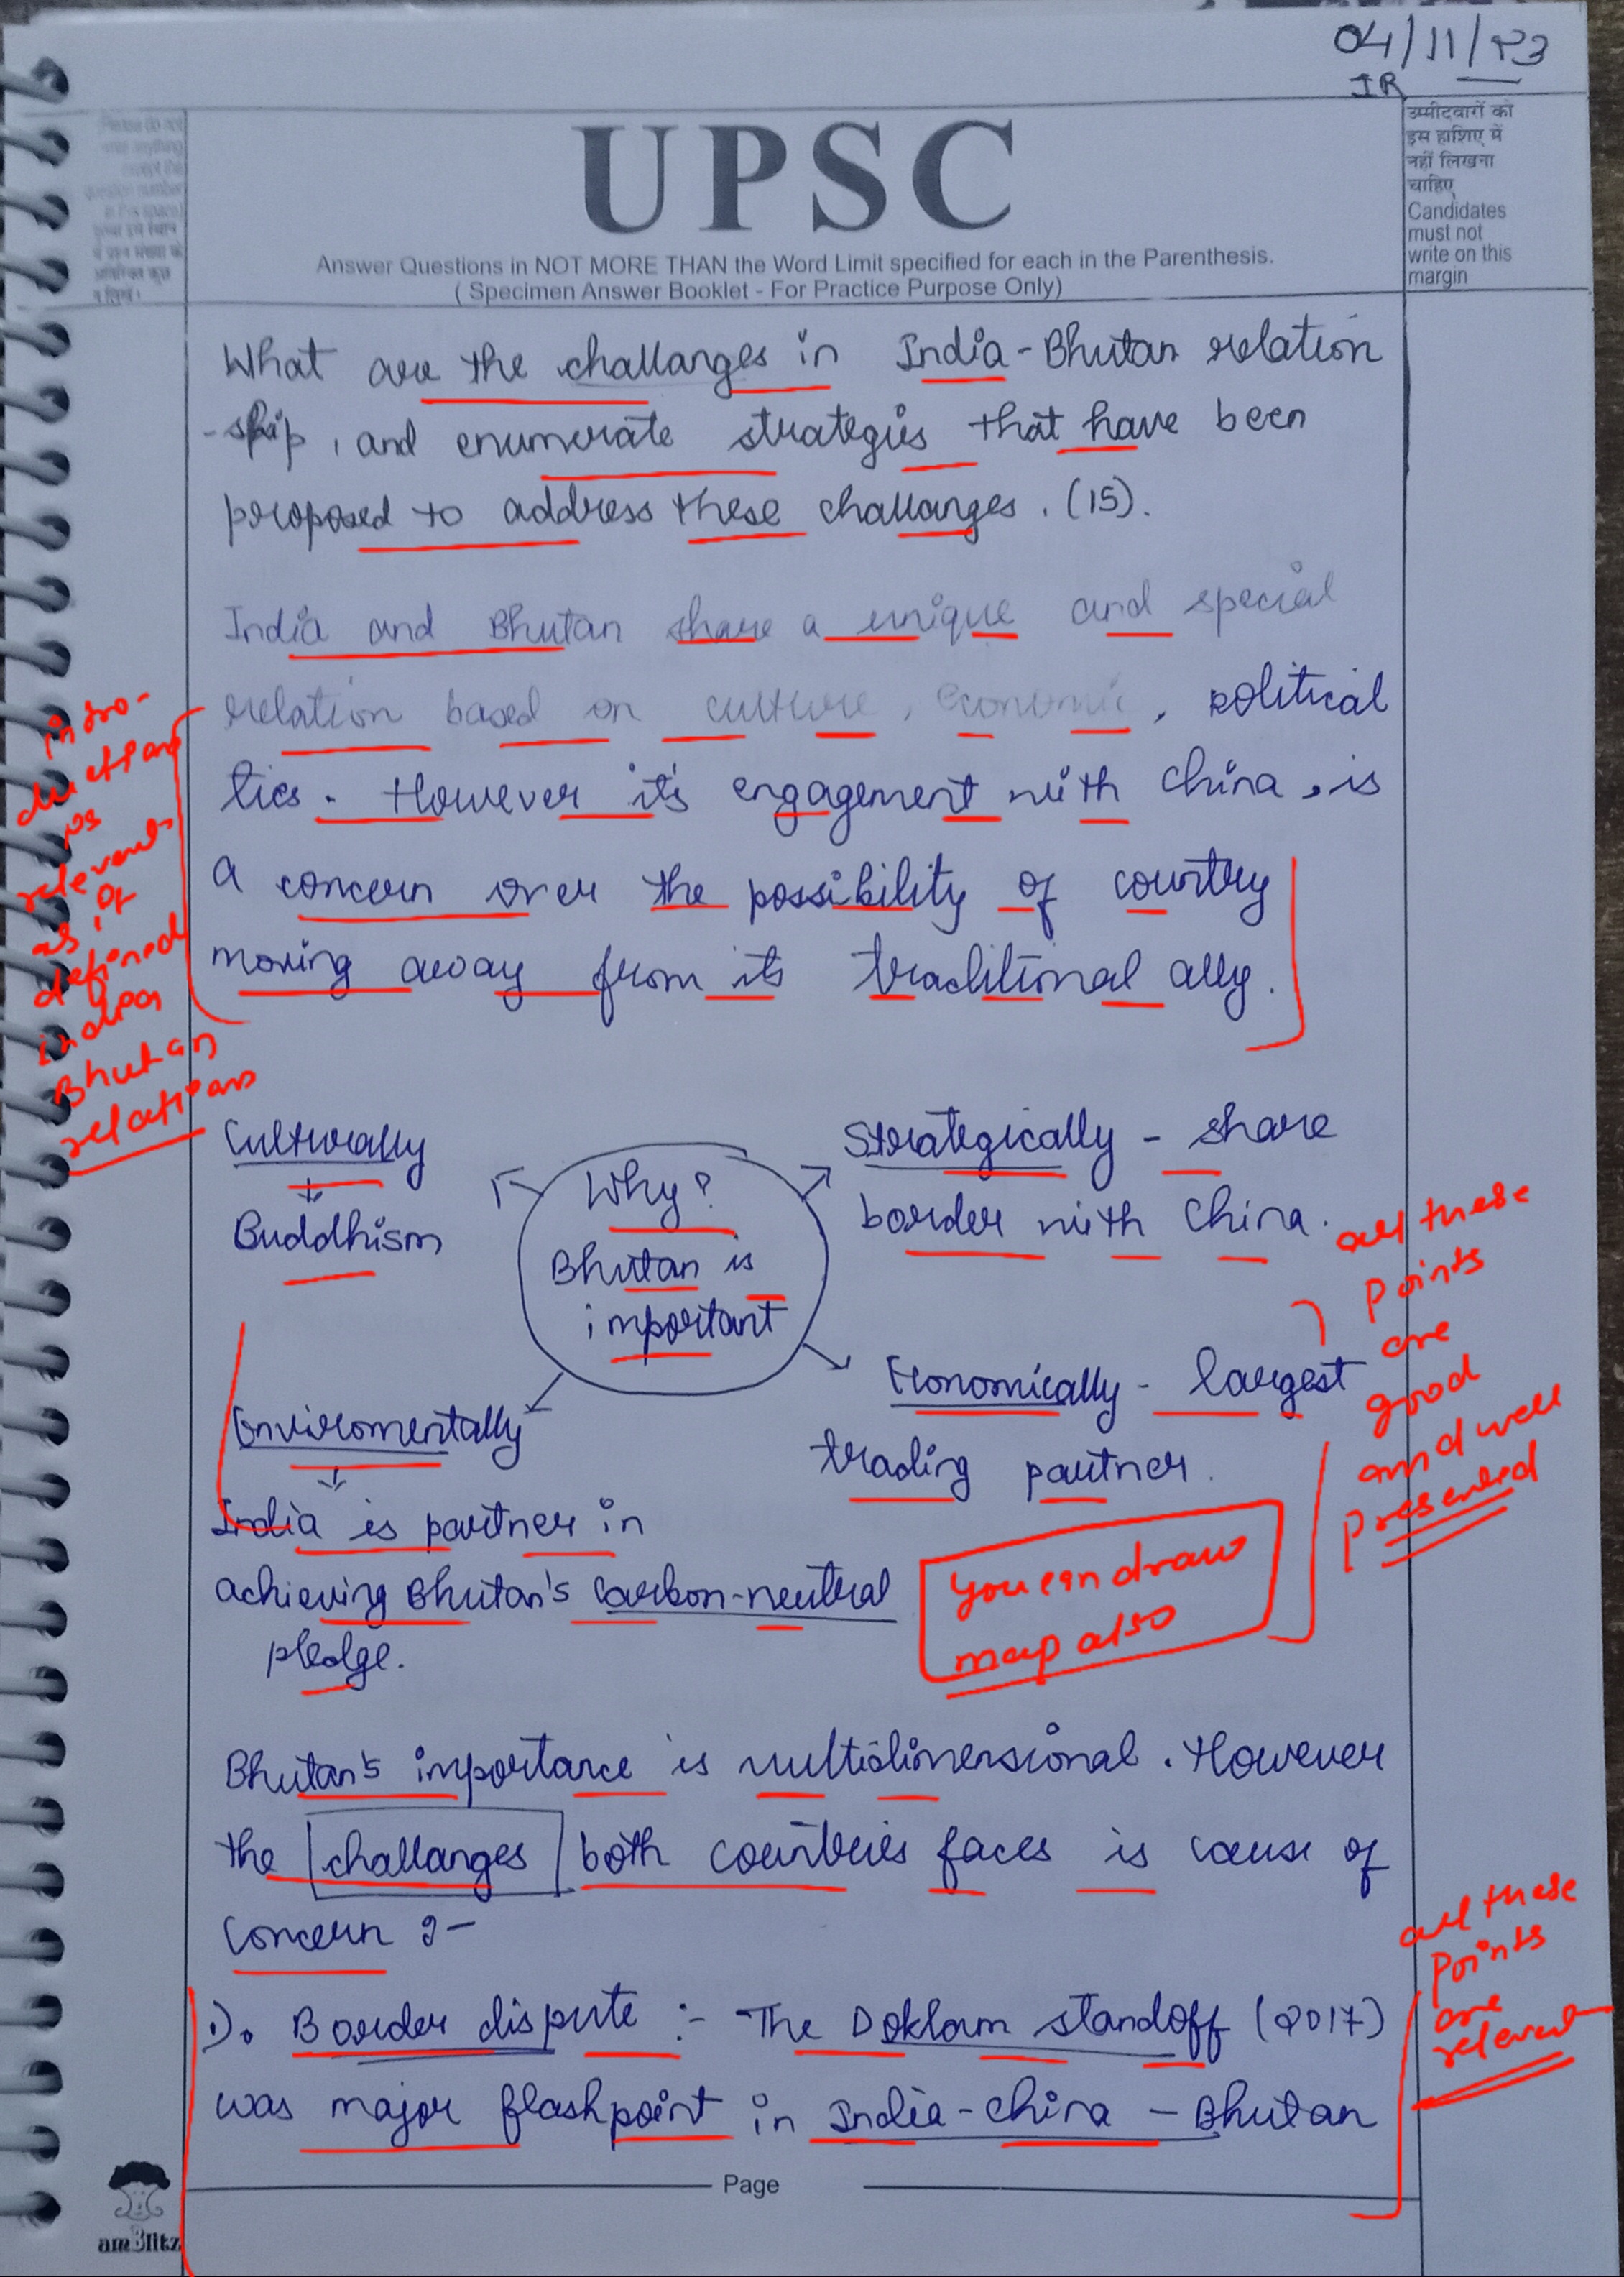 04/11/23
IR
उम्मीदवारों को
इस हाशिए में
नहीं लिखना
चाहिए
Candidates
must not
write on this
margin
UPSC
Answer Questions in NOT MORE THAN the Word Limit specified for each in the Parenthesis.
( Specimen Answer Booklet - For Practice Purpose Only)
What are the challanges in India-Bhutan relation
-ship, and enumerate strategies that have been
proposed to address these challanges. (15).
India and Bhutan share a unique and special
relation based on culture, economic, political
ties. However it's engagement with China, is
a concern over the possibility of country
moving away from its traditional ally.
intro-
duction
is
relevent
as, of
defined
india
Bhutan
relations
Culturally
Buddhism
Why?
Bhutan is
important
Strategically - share
border with China.
Economically - largest
trading partner.
Enviromentally
India is partner in
achieving Bhutan's carbon-neutral
pledge.
all these
points
are
good
and well
presented
You can draw
map also
Bhutan's importance is multidimensional. However
the challanges both countries faces is cause of
concern :-
1). Border dispute :- The Doklam standoff (2017)
was major flashpoint in India-China-Bhutan
all these
points
are
relevent
Page
am3litz